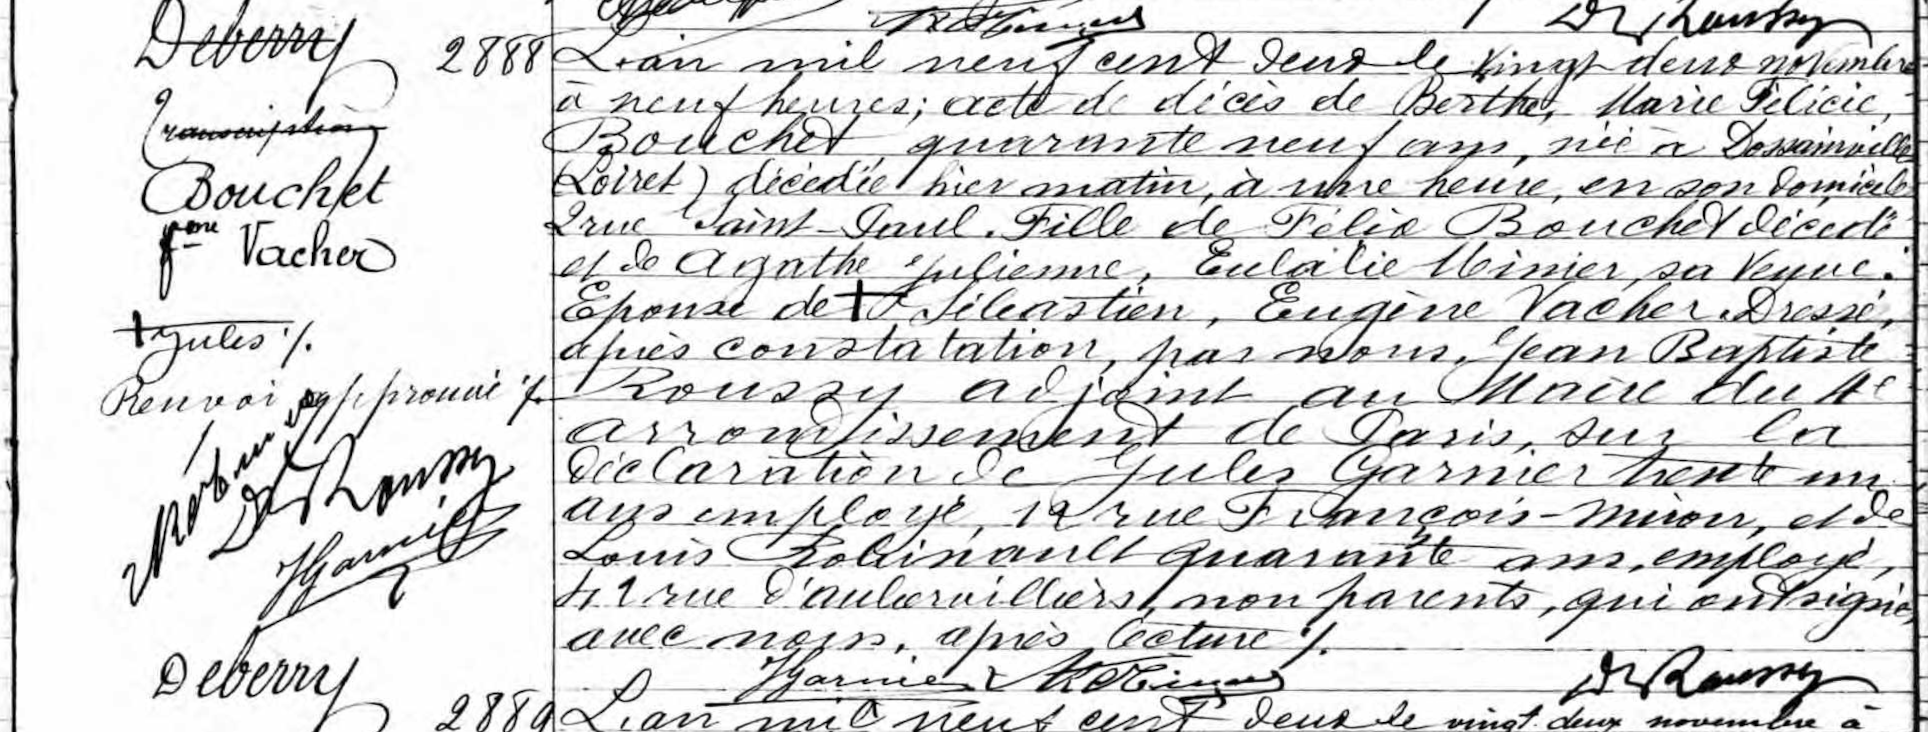 Deberry
Transcription
Bouchet
fme Vacher
2888
L'an mil neuf cent deux le vingt deux novembre
à neuf heures; acte de décès de Berthe, Marie Félicie,
Bouchet, quarante neuf ans, née à Dossainville
(Loiret) décédée hier matin, à une heure, en son domicile
2 rue Saint-Paul. Fille de Félix Bouchet décédé
et de Agathe Julienne, Eulalie Minier, sa veuve.
Epouse de † Sébastien, Eugène Vacher. Dressé,
après constatation, par nous, Jean Baptiste
Roussy adjoint au Maire du 4e
arrondissement de Paris, sur la
déclaration de Jules Garnier trente un
ans employé, 12 rue François-Miron, et de
Louis Robinault quarante ans, employé,
42 rue d'aubervilliers, non parents, qui ont signé
avec nous, après lecture ./.
† Jules ./.
Renvoi approuvé ./.
Roussy
JGarnier
JGarnier
Roussy
Deberry
2889
L'an mil neuf cent deux le vingt deux novembre à